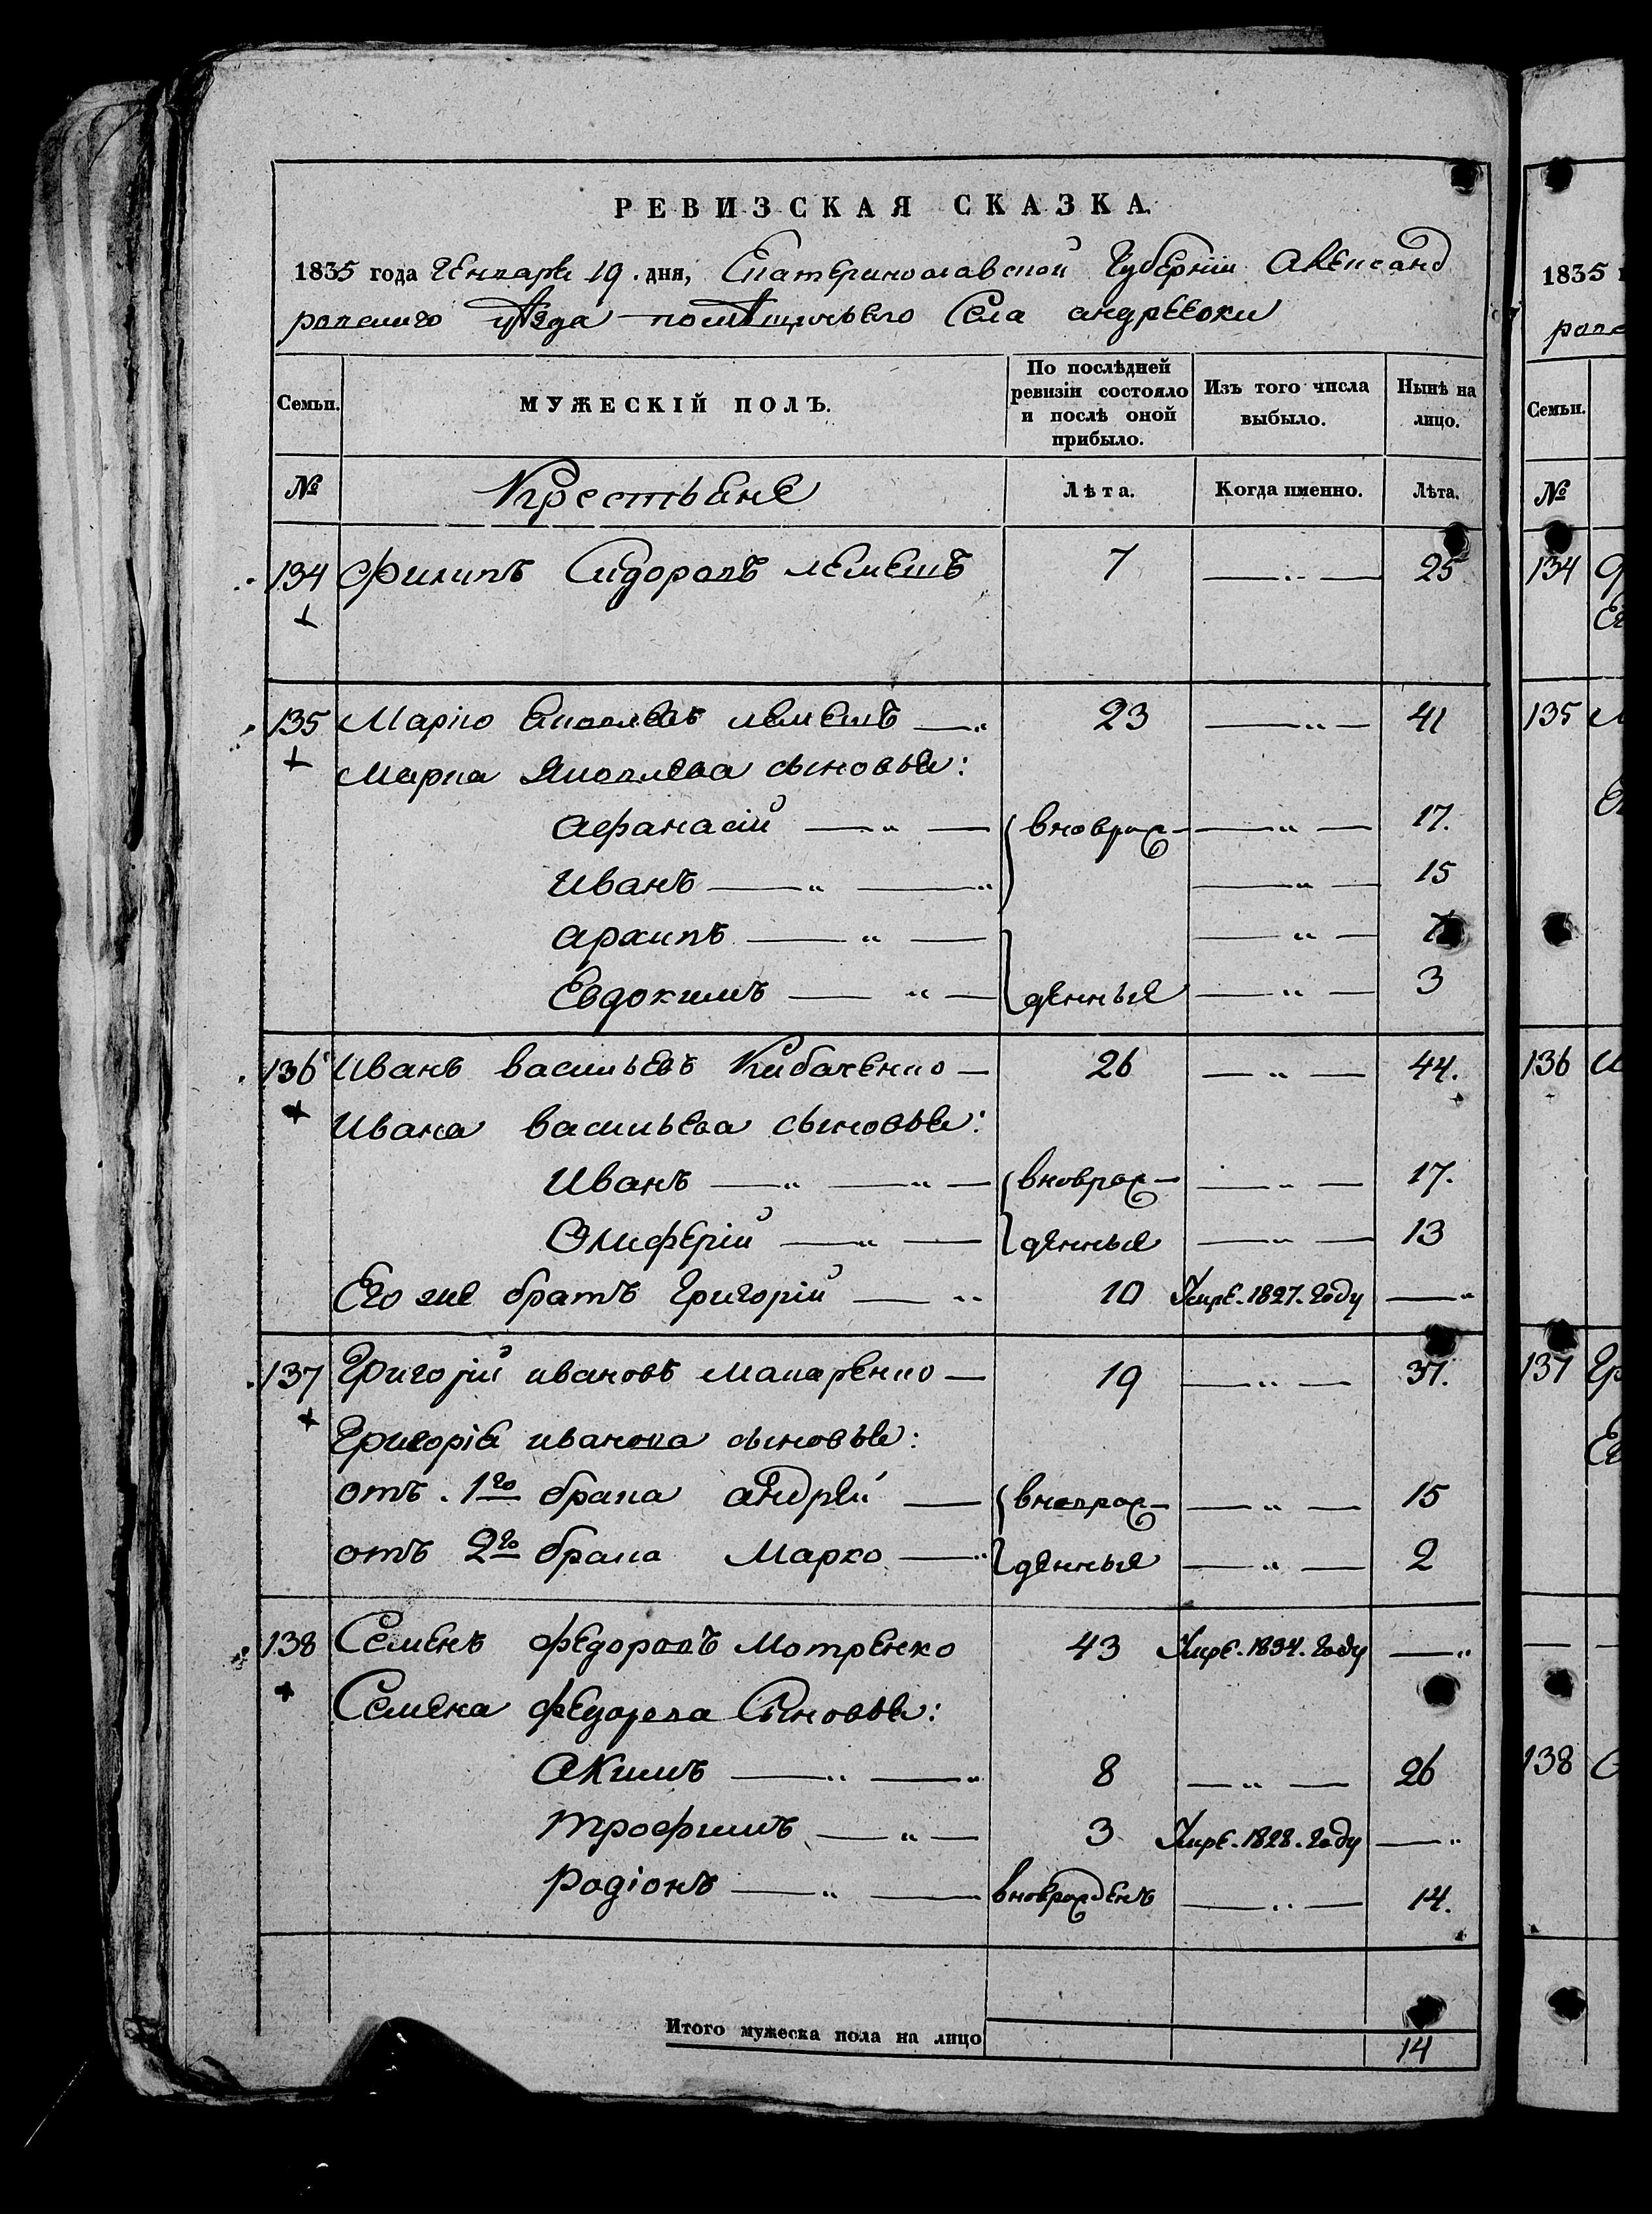 РЕВИЗСКАЯ СКАЗКА.
1835 года Генваря 19. дня, Екатеринославской Губерніи Александ
ровскаго уѣзда помѣщичьяго Села андреевки
Семьи. МУЖЕСКІЙ ПОЛЪ. По послѣдней ревизіи состояло и послѣ оной прибыло. Изъ того числа выбыло. Нынѣ на лицо.
№ Крестьяне Лѣта. Когда именно. Лѣта.
134 Филипъ Сидоровъ лемешъ 7 — 25
135 Марко Яковлевъ лемешъ — 23 — 41
Марка Яковлева сыновья:
Афанасій — „ — вноврож- — „ — 17.
Иванъ — „ — — „ — 15
архипъ — „ — — „ —
Евдокимъ — „ — денныя — „ — 3
136 Иванъ васильевъ Кибаченко — 26 — „ — 44.
Ивана васильева сыновья:
Иванъ — „ — „ — вноврож- — „ — 17.
Олиферій — „ — денныя — „ — 13
Его же братъ Григорій — „ 10 Умре. 1827. году — „
137 Григорій ивановъ макаренко — 19 — „ — 37.
Григорія иванова сыновья:
отъ. 1го брака андрей — вноврож- — „ — 15
отъ 2го брака Марко — „ денныя — „ — 2
138 Семенъ федоровъ Мотренко 43 Умре. 1834. году — „
Семена федорова Сыновья:
Акимъ — „ — „ 8 — „ — 26
Трофимъ — „ — 3 Умре. 1828. году — „
Родіонъ — „ — вноврожденъ — „ — 14.
Итого мужеска пола на лицо 14
1835
ровс
Семьи.
№
134
Ег
135
136 И
137 Гр
Ег
138 С